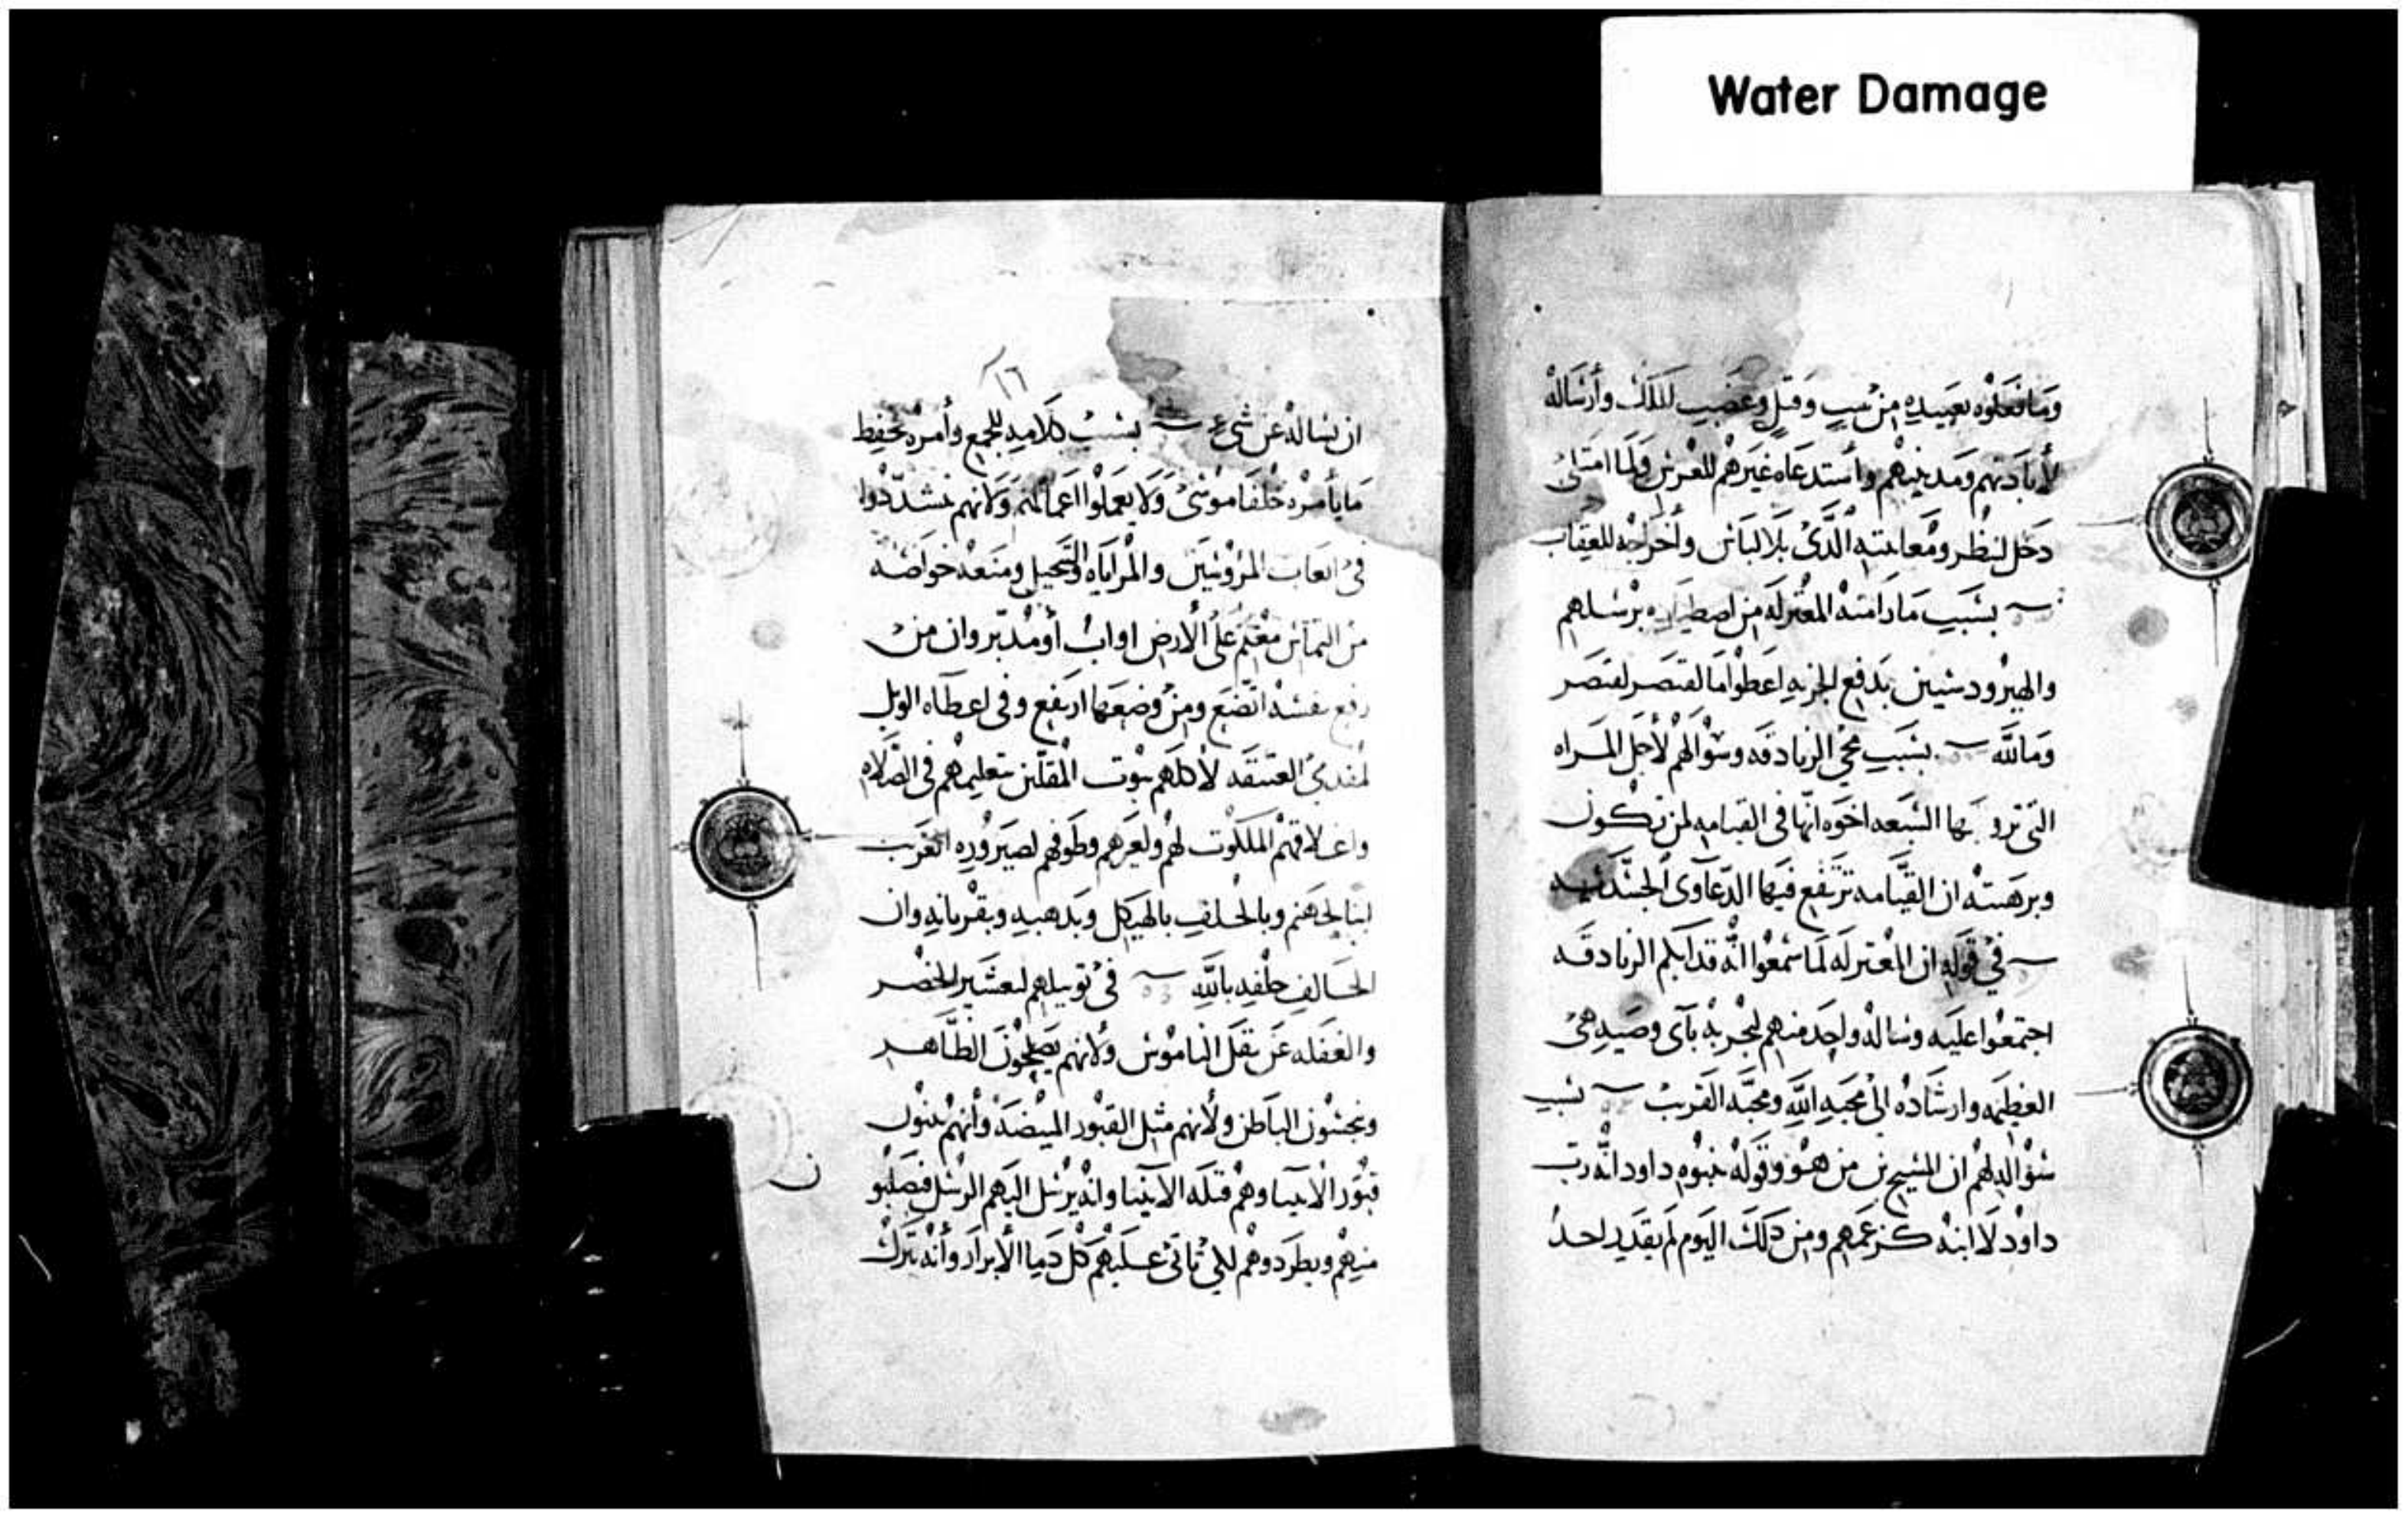 Water Damage
وما فعلوه بعبيده من سب وقتل وغضب للملك وأرساله
لأبادتهم ومدينتهم وأستدعاه غيرهم للعرس ولما امتلى
دخل لينظر ومعاينته الذى بلا لباس وأخراجه للعقاب
بسبب ما رامته المعتزله من اصطياده برسلهم
والهيرودسيين بدفع الجزيه اعطوا ما لقيصر لقيصر
وما لله بسبب مجي الزنادقه وسؤالهم لأجل المراه
التي تزوجها السبعه اخوه انها في القيامه لمن تكون
ان القيامه ترتفع فيها الدعاوى
في قوله ان المعتزله لما سمعوا انه قد ابكم الزنادقه
اجتمعوا عليه وساله واحد منهم ليجربه بآى وصيه هي
العظيمه وارشاده الى محبه الله ومحبه القريب بسبب
سؤاله لهم ان المسيح بن من هو وقوله بنبوه داود انه رب
داود لا ابنه كزعمهم ومن ذلك اليوم لم يقدر احد
١٦
ان يساله عن شى بسبب كلامه للجمع وأمره بحفظ
ما يأمره خلفا موسى ولا يعملوا اعمالهم ولانهم يشددوا
في اتعاب والمراياه ومنعه خواصه
من معلم على الأرض او اب أو مدبر وان من
رفع نفسه اتضع ومن وضعها ارتفع وفي اعطاه الويل
لأكلهم بيوت بتعليهم في الصلاه
واغلاقهم الملكوت لهم ولغيرهم وطوفهم لصيروره الغريب
ابنا لجهنم وبالحلف بالهيكل وبذهبه وبقربانه وان
الحالف حلفه بالله في توبيخهم لتعشير الخضر
والغفله عن ثقل الناموس ولانهم يصلحون الظاهر
وينجسون الباطن ولأنهم مثل القبور المبيضه وأنهم يبنون
قبور الأنبيا وهم قتله الأنبيا وانه يرسل اليهم الرسل فيصلبو
منهم ويطردوهم لكي تاتى عليهم كل دما الأبرار وأنه يترك